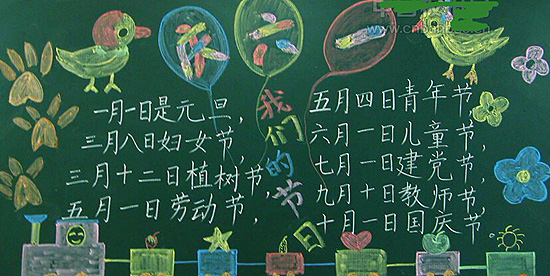 六 二 一
我们的节日
一月一日是元旦，
三月八日妇女节，
三月十二日植树节，
五月一日劳动节，
五月四日青年节，
六月一日儿童节，
七月一日建党节，
九月十日教师节，
十月一日国庆节。